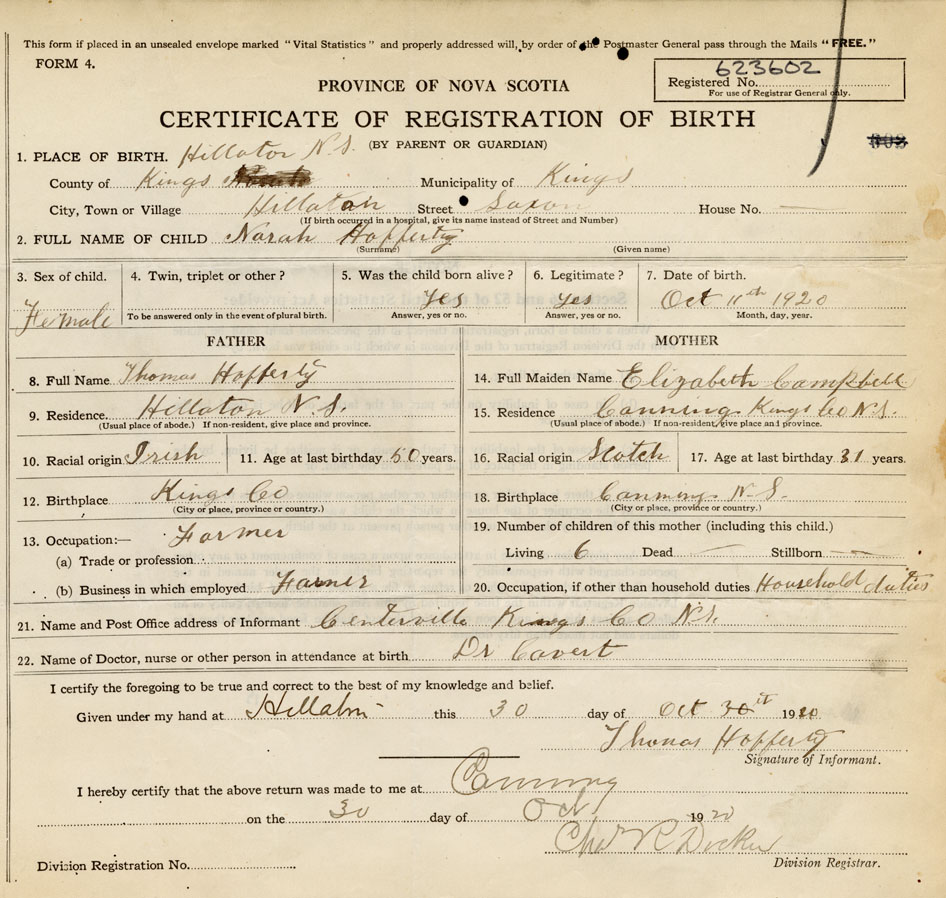 This form if placed in an unsealed envelope marked "Vital Statistics" and properly addressed will, by order of the Postmaster General pass through the Mails "FREE."
FORM 4.
623602
Registered No.
For use of Registrar General only.
PROVINCE OF NOVA SCOTIA
CERTIFICATE OF REGISTRATION OF BIRTH
(BY PARENT OR GUARDIAN)
1. PLACE OF BIRTH. Hillaton N.S.
County of Kings Municipality of Kings
City, Town or Village Hillaton Street Saxon House No.
(If birth occurred in a hospital, give its name instead of Street and Number)
2. FULL NAME OF CHILD Norah Hafferty
(Surname) (Given name)
3. Sex of child. 4. Twin, triplet or other? 5. Was the child born alive? 6. Legitimate? 7. Date of birth.
Female Yes yes Oct 11th 1920
To be answered only in the event of plural birth. Answer, yes or no. Answer, yes or no. Month, day, year.
FATHER MOTHER
8. Full Name Thomas Hafferty 14. Full Maiden Name Elizabeth Campbell
9. Residence. Hillaton N.S. 15. Residence Canning Kings Co N.S.
(Usual place of abode.) If non-resident, give place and province. (Usual place of abode.) If non-resident, give place and province.
10. Racial origin Irish 11. Age at last birthday 50 years. 16. Racial origin Scotch 17. Age at last birthday 31 years.
12. Birthplace Kings Co 18. Birthplace Canning N.S.
(City or place, province or country.) (City or place, province or country.)
13. Occupation:— Farmer 19. Number of children of this mother (including this child.)
(a) Trade or profession Living 6 Dead — Stillborn —
(b) Business in which employed Farmer 20. Occupation, if other than household duties Household duties
21. Name and Post Office address of Informant Centerville Kings Co N.S.
22. Name of Doctor, nurse or other person in attendance at birth Dr Covert
I certify the foregoing to be true and correct to the best of my knowledge and belief.
Given under my hand at Hillaton this 30 day of Oct 30 1920
Thomas Hafferty
Signature of Informant.
I hereby certify that the above return was made to me at Canning
on the 30 day of Oct. 1920
Division Registrar.
Division Registration No.